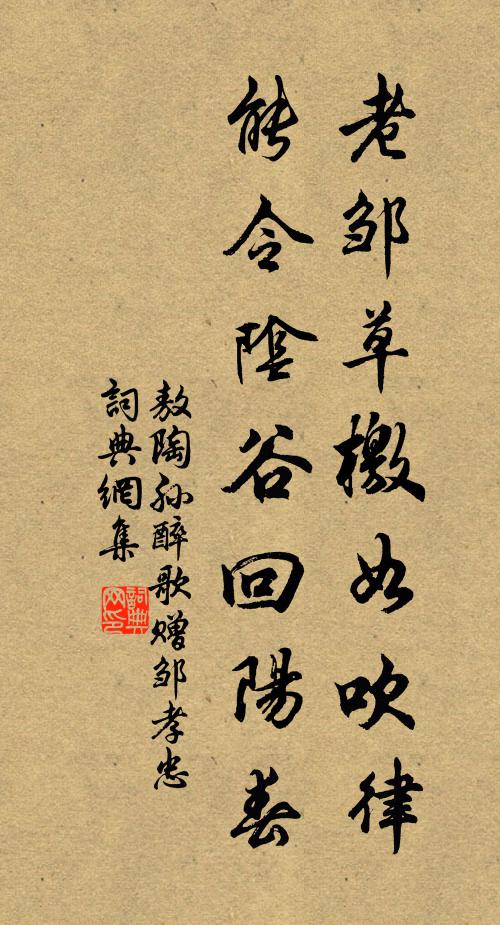 老邹草檄如吹律
能令陰谷回陽春
敖陶孙醉歌赠邹孝忠
詞典網集
詞典
网印